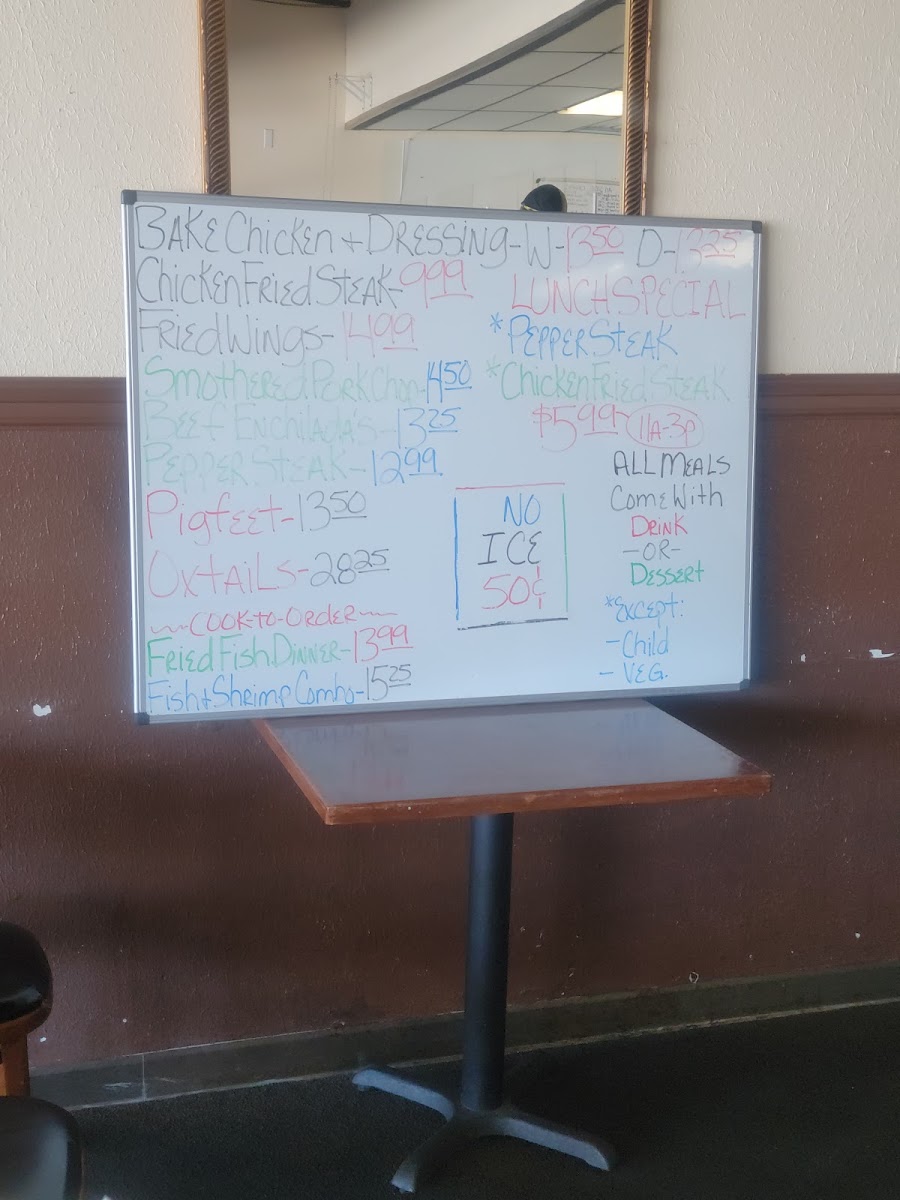 BAKE Chicken + DRESSING-W-13.50 D-13.25
ChickenFriedSteak-9.99
FriedWings-14.99
Smothered Pork Chop-14.50
Beef Enchilada's-13.25
PEPPER STEAK-12.99
Pigfeet-13.50
Oxtails-28.25
~~COOK-TO-ORDER~~
FriedFishDinner-13.99
Fish+Shrimp Combo-15.25
LUNCH SPECIAL
*PEPPER STEAK
*Chicken Fried Steak
$5.99 11A-3P
NO
ICE
50¢
ALL MEALS
Come With
Drink
-OR-
Dessert
*Except:
-Child
-VEG.